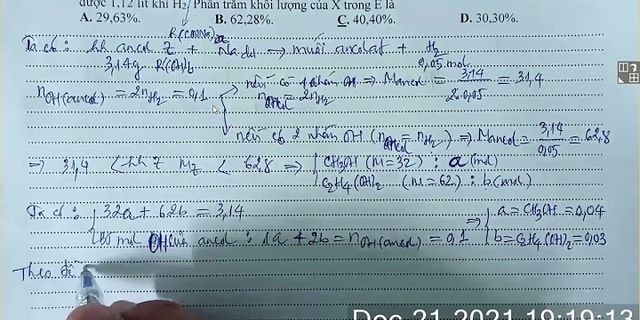 được 1,12 lít khí H₂. Phần trăm khối lượng của X trong E là
A. 29,63%. B. 62,28%. C. 40,40%. D. 30,30%.
R(COONa)
Ta có : hh ancol Z + Na dư → muối ancolat + H₂
3,14g R(OH)b 0,05 mol
nOH(ancol) = 2nH₂ = 0,1 nếu có 1 nhóm OH ⇒ Mancol = 3,14 / 2.0,05 = 31,4
nancol = 2nH₂
nếu có 2 nhóm OH (nancol = nH₂) ⇒ Mancol = 3,14 / 0,05 = 62,8
⇒ 31,4 < hh Z MZ < 62,8 ⇒ CH₃OH (M=32) : a (mol)
C₂H₄(OH)₂ (M=62) : b (mol)
Ta có : 32a + 62b = 3,14 ⇒ a = CH₃OH = 0,04
Số mol OH của ancol : 1a + 2b = nOH(ancol) = 0,1 b = C₂H₄(OH)₂ = 0,03
Theo đề
Dec 21 2021 19:19:13